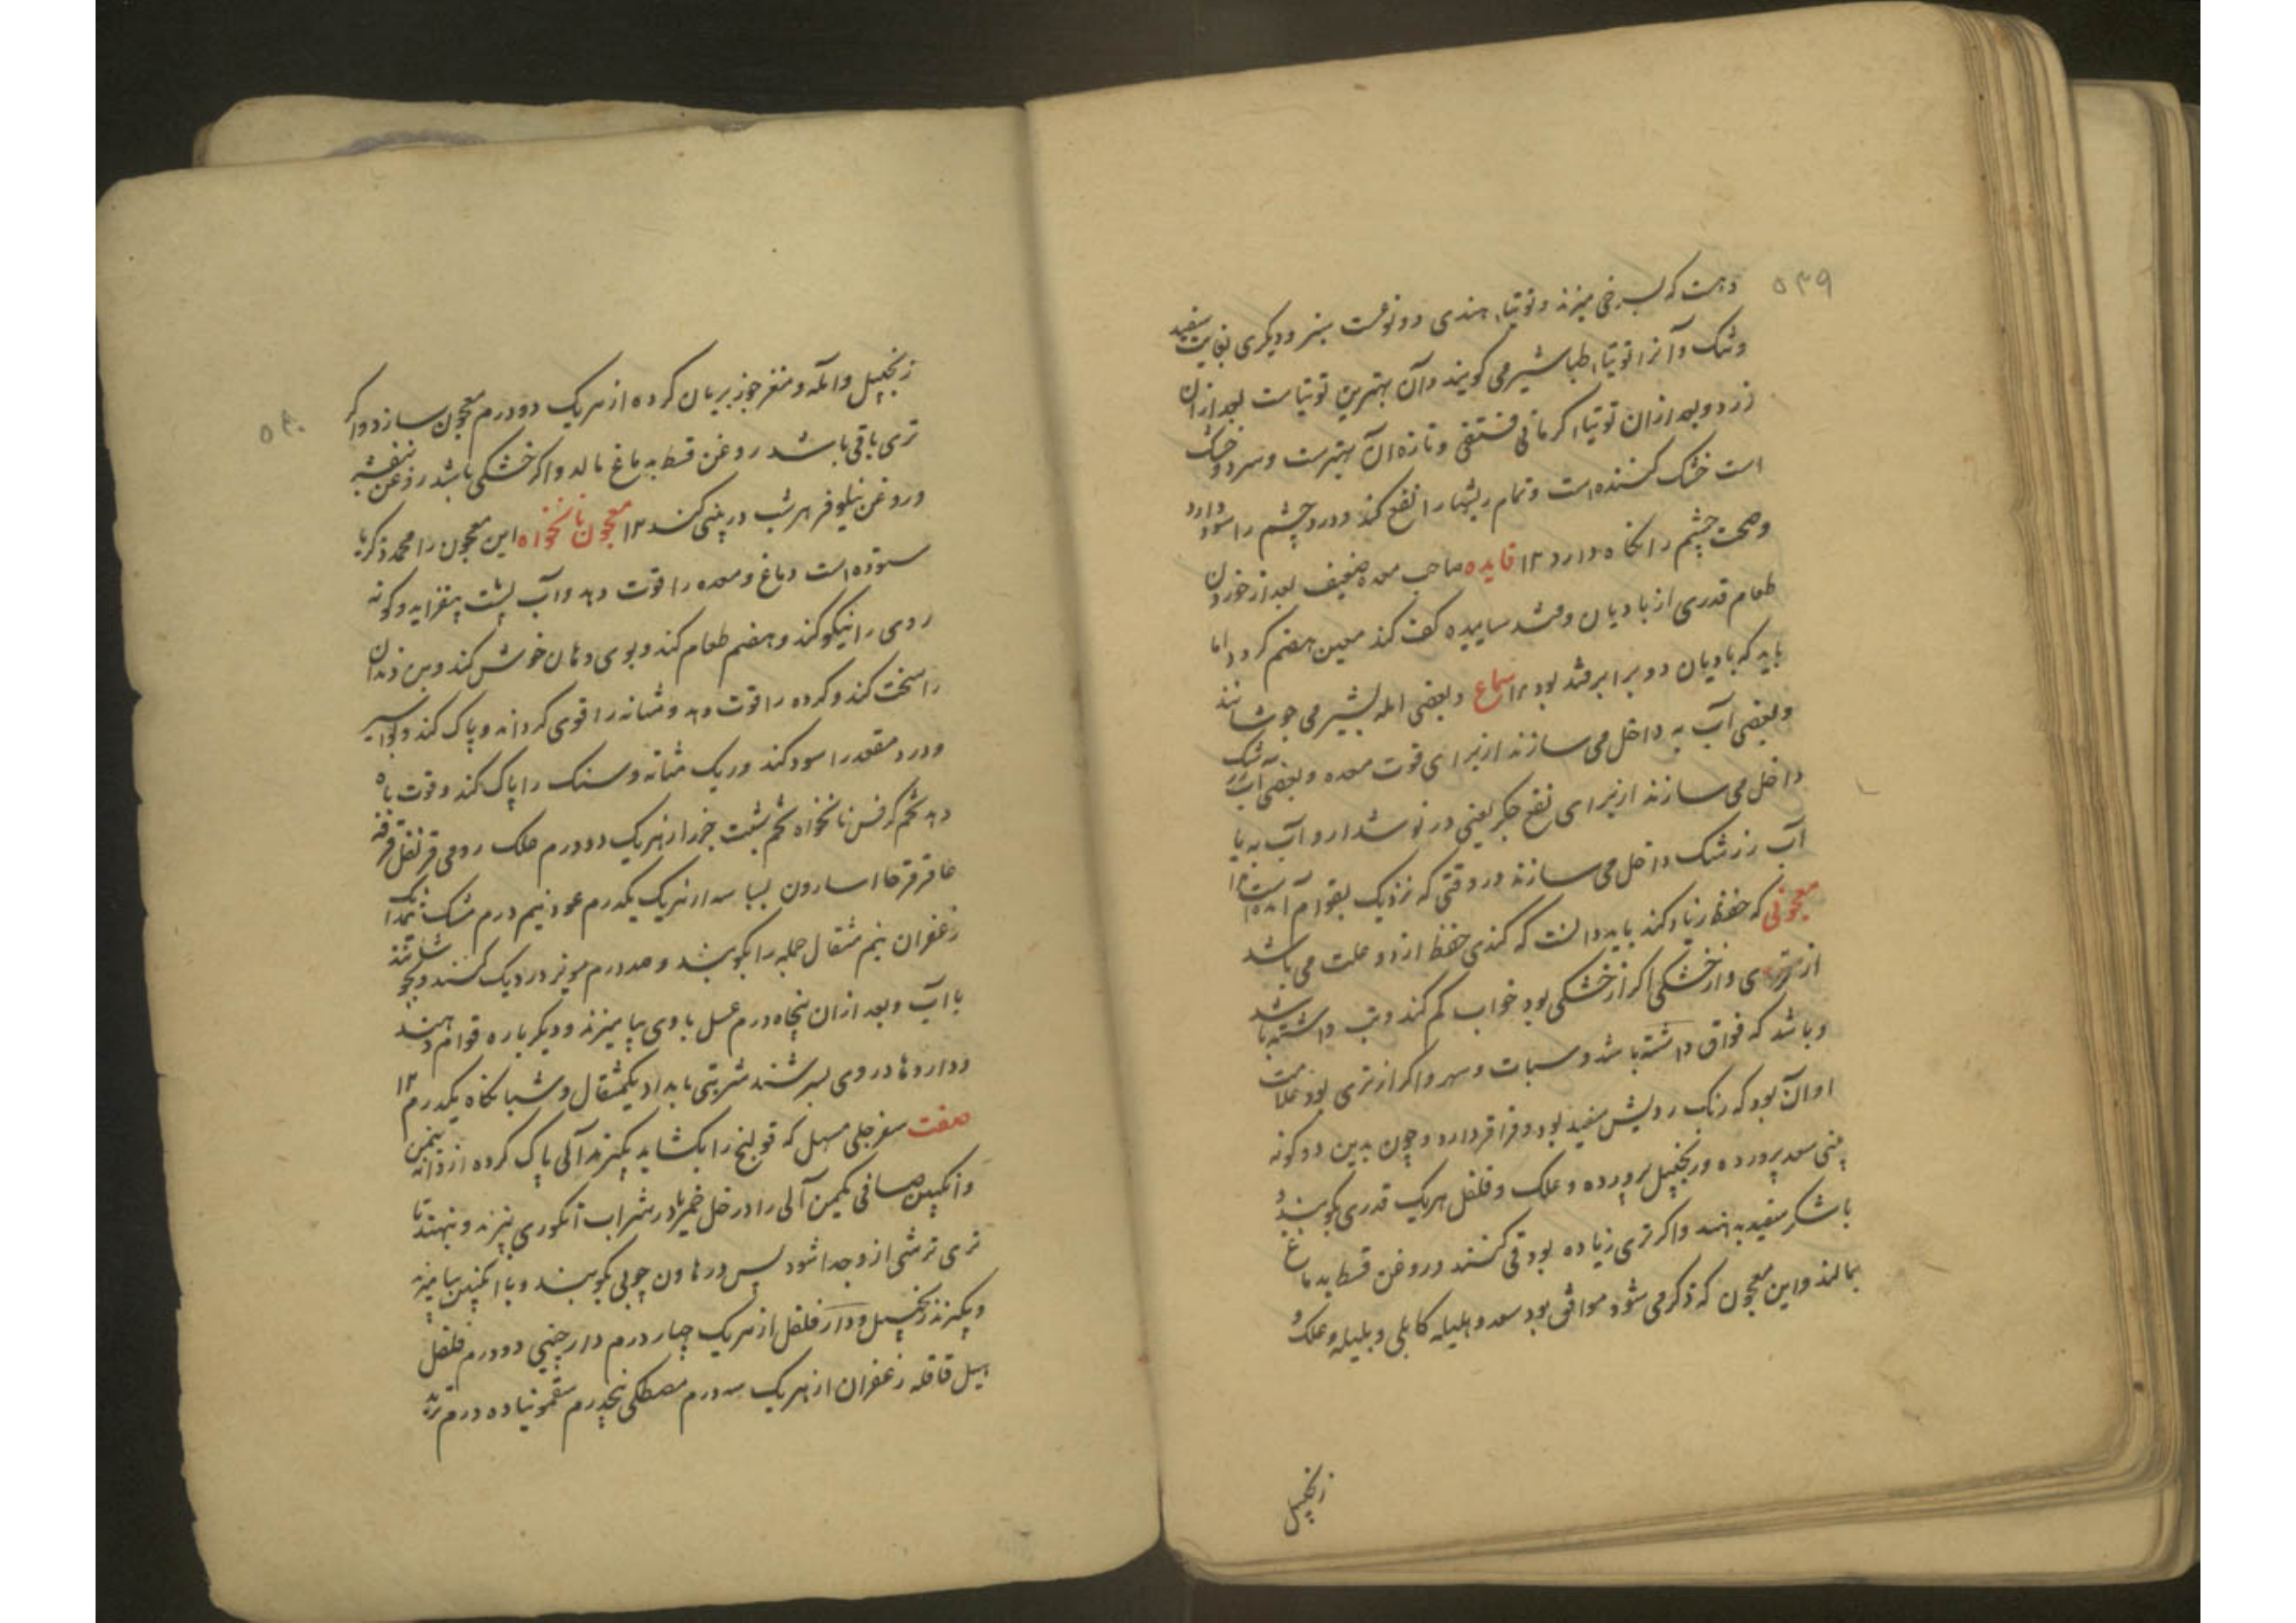 ۵۳۹
دهت که بسرخی میزند و توتیاء هندی دو نوعست سبز و دیگری بغایت سفید
و تنک و آنرا توتیاء طباشیر می کویند و آن بهترین توتیاست بعد از ان
زرد و بعد از ان توتیاء کرمانی فستقی و تازه آن بهترست و سرد و خشک
است خشک کننده است و تمام ریشها را نفع کند و درد چشم را سود دارد
و صحت چشم را نکاه دارد ۱۲ فایده صاحب معده ضعیف بعد از خوردن
طعام قدری از بادیان و قند ساییده کف کند معین هضم کردد اما
باید که بادیان دو برابر قند بود ۱۲ سماع و بعضی امله بشیر می جوشانند
و بعضی آب به داخل می سازند از برای قوت معده و بعضی آب زرشک
داخل می سازند از برای نفع جکر یعنی در نوشدارو آب به یا
آب زرشک داخل می سازند در وقتی که نزدیک بقوام آمده است ۱۲
معجونی که حفظ زیاد کند باید دانست که کندی حفظ از دو علت می باشد
از تری و از خشکی اکر از خشکی بود خواب کم کند و تب داشته باشد
و باشد که فواق داشته باشد و سبات و سهر و اکر از تری بود علامت
او آن بود که رنک رویش سفید بود و قراقر دارد و چون بدین دو کونه
پنی سعد پرورده و زنجبیل پرورده و علک و فلفل هریک قدری بکوبند و
با شکر سفید بدهند و اکر تری زیاده بود قی کنند و روغن قسط بدماغ
بمالند و این معجون که ذکر می شود موافق بود سعد و هلیله کابلی و بلیله و علک و
زنجبیل
۵۴۰
زنجبیل و امله و مغز جوز بریان کرده از هریک دو درم معجون سازد و اکر
تری باقی باشد روغن قسط به ماغ مالد و اکر خشکی باشد روغن بنفشه
و روغن نیلوفر هر شب در بینی کند ۱۲ معجون نانخواه این معجون را محمد ذکریا
ستوده است دماغ و معده را قوت دهد و آب پشت بیفزاید و کونه
روی را نیکو کند و هضم طعام کند و بوی دهان خوش کند و بن دندان
را سخت کند و کرده را قوت دهد و مثانه را قوی کرداند و پاک کند و بواسیر
و درد مقعد را سود کند و ریک مثانه و سنک را پاک کند و قوت باه
دهد تخم کرفس نانخواه تخم شبت جزر از هریک دو درم علک رومی قرنفل قرفه
عاقرقرحا اسارون بسباسه از هریک یکدرم عود نیم درم مشک نیمدانک
زعفران نیم مثقال حلبه را بکوبند و صد درم مویز در دیک کنند و بجوشانند
با آب و بعد از ان پنجاه درم عسل با وی بیامیزند و دیکر باره قوام دهند
و داروها در وی بسرشند شربتی بامداد یکمثقال و شبانکاه یکدرم ۱۲
صفت سفرجلی مسهل که قولنج را بکشاید بکیرند آلی پاک کرده از دانه نیمن
و انکبین صافی یکمن آلی را در خل خمر یا در شراب انکوری بپزند و بنهند تا
تری ترشی از و جدا شود پس در هاون چوبی بکوبند و با انکبین بیامیزند
و بکیرند زنجبیل و دار فلفل از هریک چهار درم دارچینی دو درم فلفل
هیل قاقله زعفران از هریک سه درم مصطکی پنجدرم سقمونیا ده درم تربد